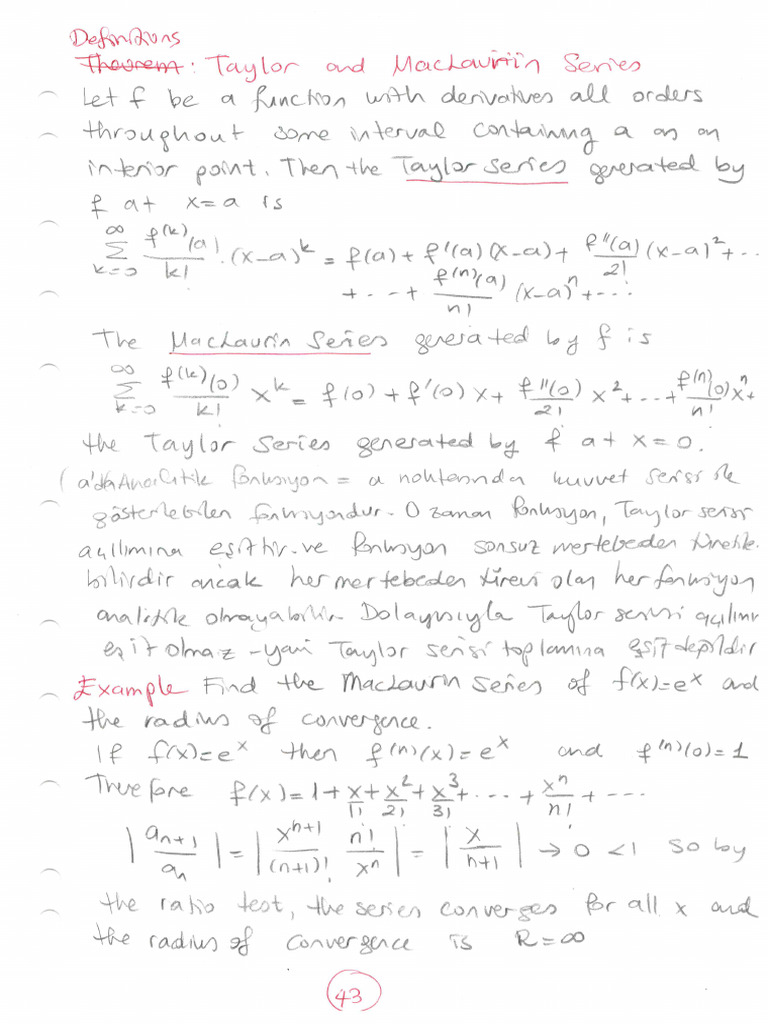 Definitions
Theorem: Taylor and Maclaurin Series
Let f be a function with derivatives all orders
throughout some interval containing a as an
interior point. Then the Taylor Series generated by
f at x=a is
∞ Σ k=0 f^(k)(a)/k! . (x-a)^k = f(a) + f'(a)(x-a) + f''(a)/2! (x-a)^2 + ..
+ ... + f^(n)(a)/n! (x-a)^n + ...
The Maclaurin Series generated by f is
∞ Σ k=0 f^(k)(0)/k! x^k = f(0) + f'(0) x + f''(0)/2! x^2 + ... + f^(n)(0)/n! x^n + ..
the Taylor Series generated by f at x=0.
(a'da Analitik fonksiyon = a noktasında kuvvet serisi ile
gösterilebilen fonksiyondur. O zaman fonksiyon, Taylor serisi
açılımına eşittir. ve fonksiyon sonsuz mertebeden türetile
bilirdir ancak her mertebeden türevi olan her fonksiyon
analitik olmayabilir. Dolayısıyla Taylor serisi açılımı
eşit olmaz - yani Taylor serisi toplamına eşit değildir
Example Find the Maclaurin Series of f(x)=e^x and
the radius of convergence.
If f(x)=e^x then f^(n)(x)=e^x and f^(n)(0)=1
Therefore f(x)=1+x/1!+x^2/2!+x^3/3!+...+x^n/n!+...
|a_{n+1}/a_n| = |x^{n+1}/(n+1)! n!/x^n| = |x/n+1| → 0 <1 so by
the ratio test, the series converges for all x and
the radius of convergence is R=∞
43